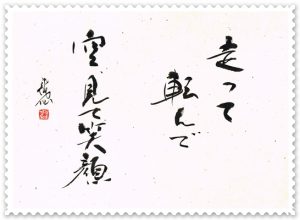 走って
転んで
空見て笑顔